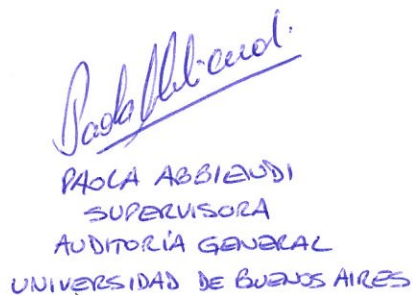 Paola Abbiendi.
PAOLA ABBIENDI
SUPERVISORA
AUDITORÍA GENERAL
UNIVERSIDAD DE BUENOS AIRES